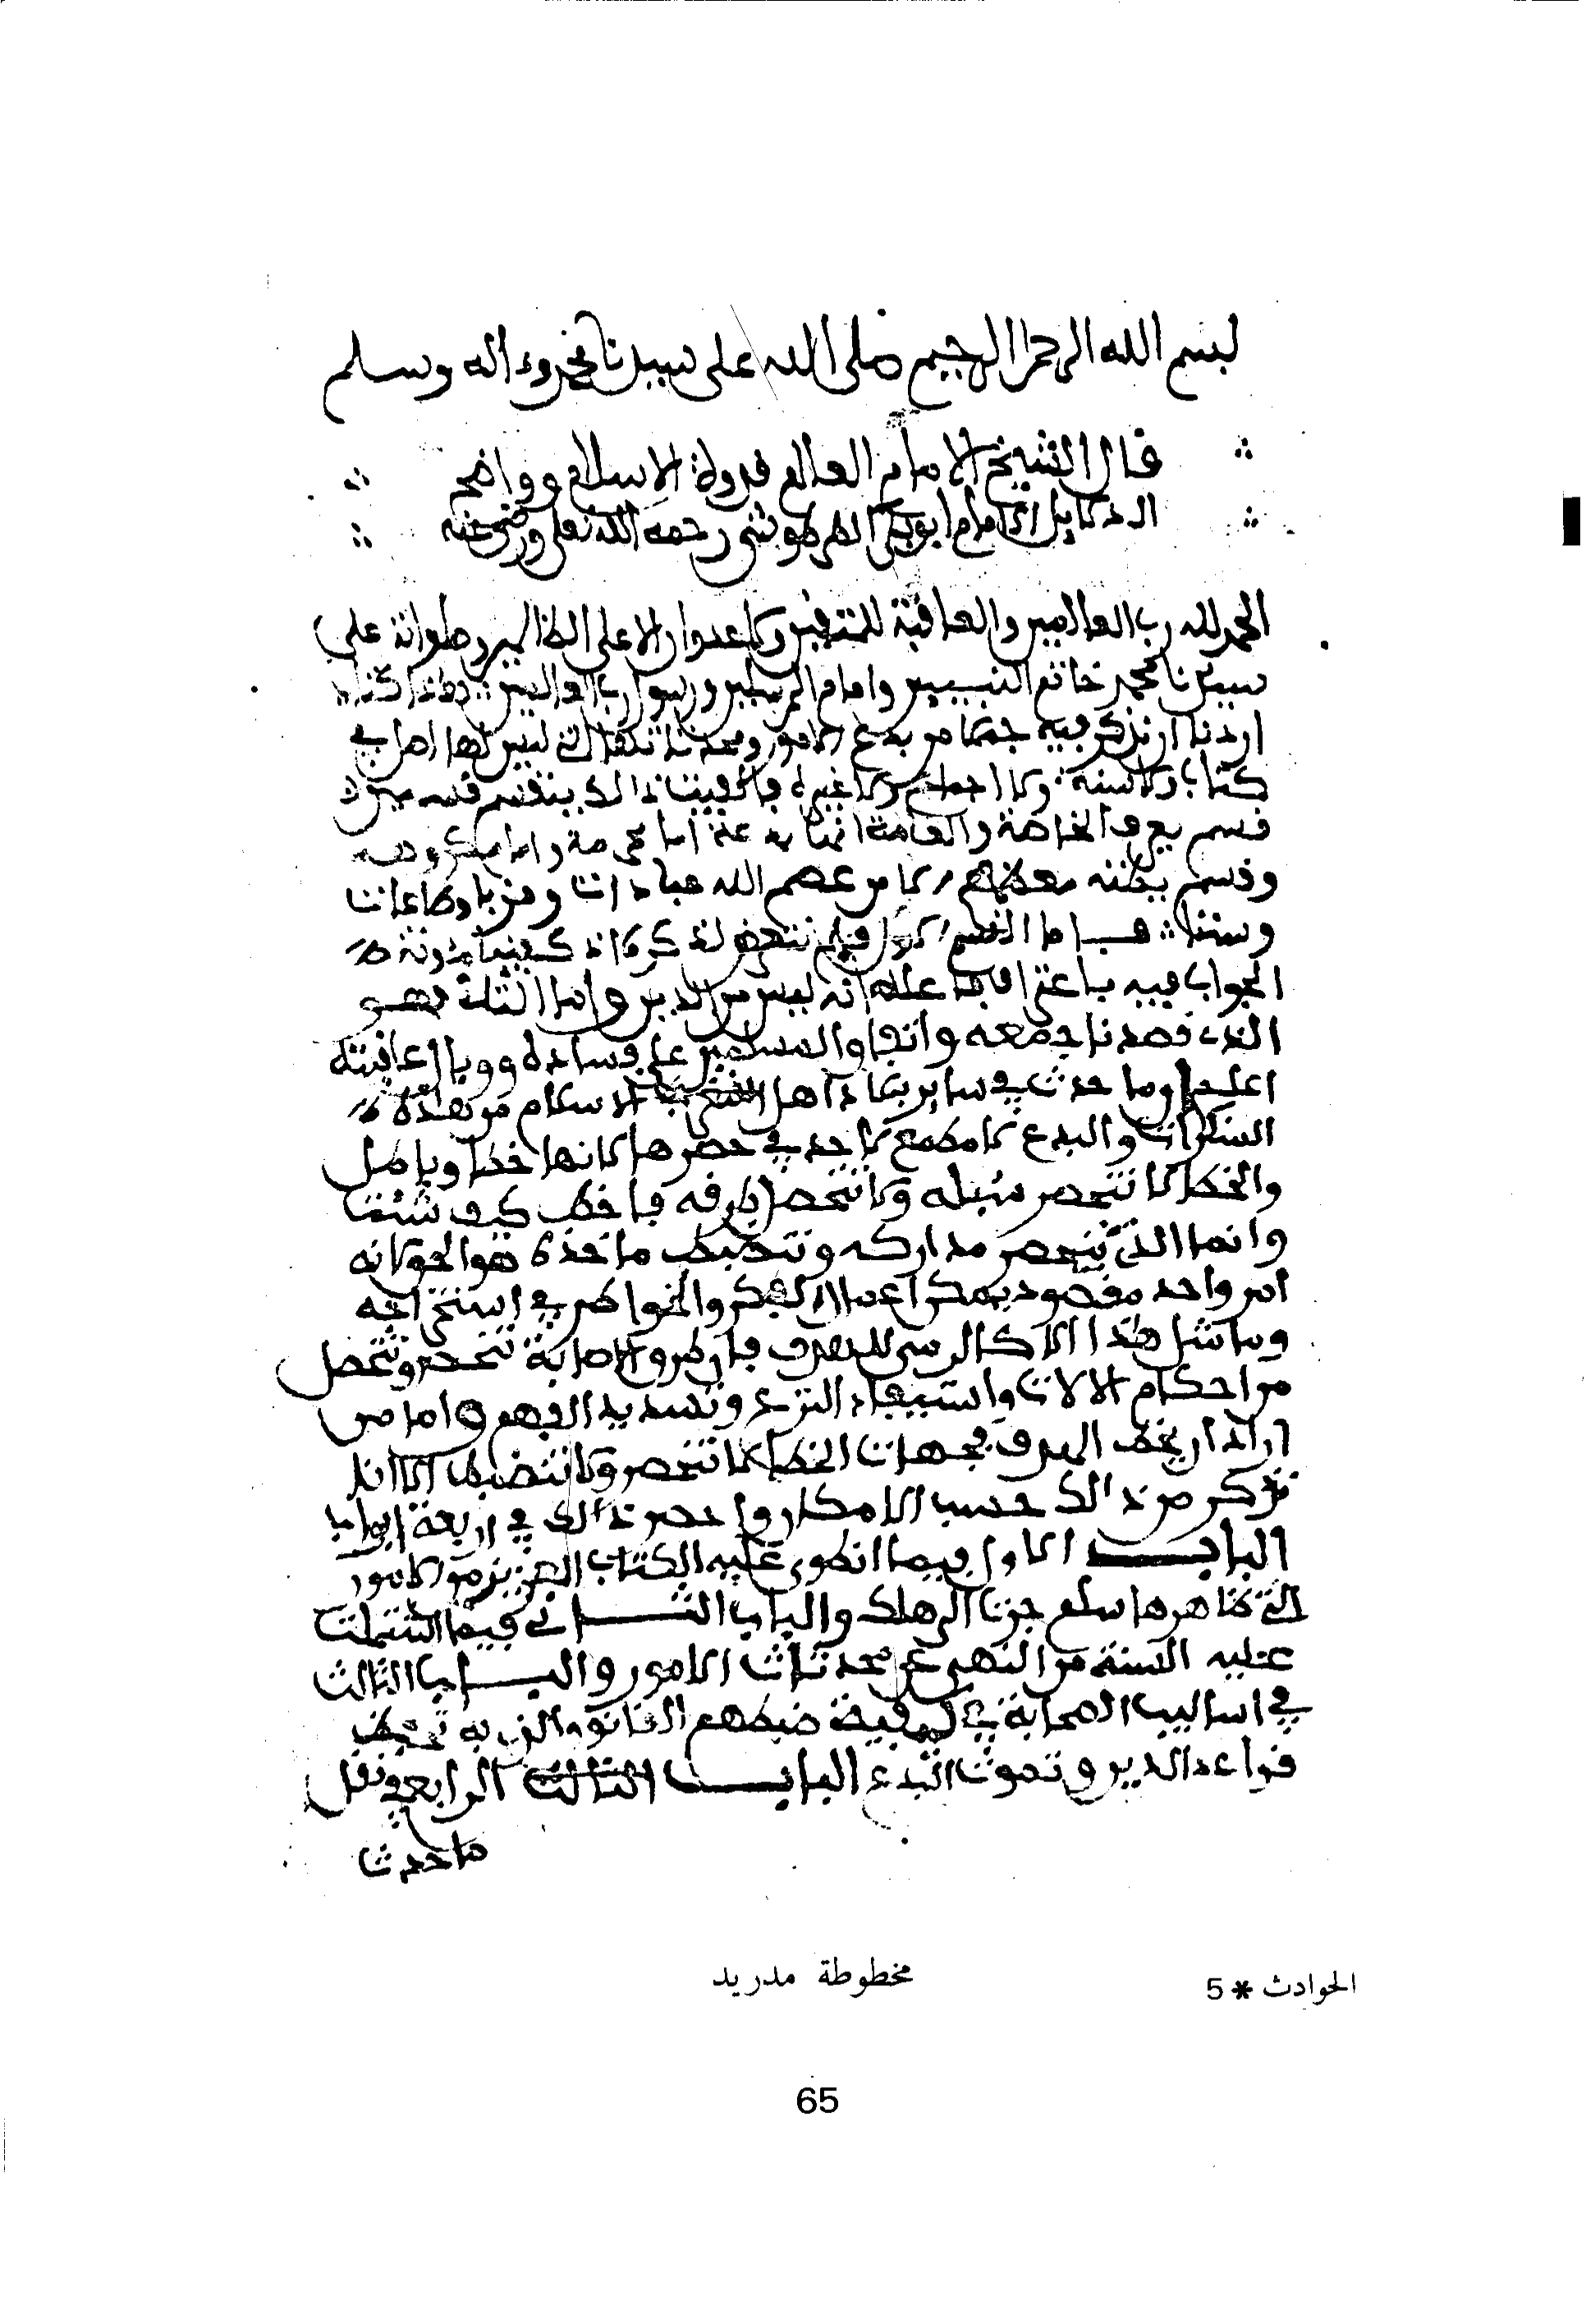 بسم الله الرحمن الرحيم صلى الله على سيدنا محمد وءاله وسلم
قال الشيخ الامام العالم قدوة الاسلام وواضح
الدلايل الامام ابو بكر الطرطوشي رحمه الله تعلى ورضي عنه
الحمد لله رب العالمين والعاقبة للمتقين ولا عدوان الا على الظالمين وصلواته على
سيدنا محمد خاتم النبيين وامام المرسلين ورسول رب العالمين هذا كتاب
اردنا ان نذكر فيه جملا من بدع الامور ومحدثاتها التي ليس لها اصل في
كتاب ولا سنة ولا اجماع ولا غيره فالفيت ذالك ينقسم قسمين
قسم يعرف الخاصة والعامة انها بدعة اما محرمة واما مكروهة
وقسم يظنه معظمهم الا من عصم الله عبادات وقربا وطاعات
وسننا فاما القسم الاول فلم نتعرض لذكره اذ كفينا مؤنة
الجواب فيه باعتراف فاعله انه ليس من الدين واما الثاني فهو
الذي قصدنا جمعه وانقاذ المسلمين على فساده ووبال عاقبته
اعلم وما حدث في ساير بلاد اهل الاسلام من هذه
المنكرات والبدع لا مطمع لاحد في حصرها لانها خطا وباطل
والخطا لا تنحصر سبله ولا تتحصل طرقه فاخط كيف شئت
وانما الذي تنحصر مداركه وتنضبط ماخذه هو الحق لانه
امر واحد مقصود يمكن اعمال الفكر والخواطر في استخراجه
وما مثل هذا الا كالرمي للهدف فان طرق الاصابة تنحصر وتتحصل
من احكام الالات واستيفاء النزع وتسديد السهم واما من
اراد ان يخط الهدف فجهات الخطا لا تنحصر ولا تنضبط الا انا
نذكر من ذالك حسب الامكان وانحصر ذالك في اربعة ابواب
الباب الاول فيما انطوى عليه الكتاب العزيز من الامور
التي ظاهرها سلم جرت الى هلك والباب الثاني فيما اشتملت
عليه السنة من النهي عن محدثات الامور والباب الثالث
في اساليب الصحابة في كيفية ضبطهم القانون الذي به تحفظ
قواعد الدين وتموت البدع الباب الرابع في نقل
ما حدث
مخطوطة مدريد
الحوادث * 5
65